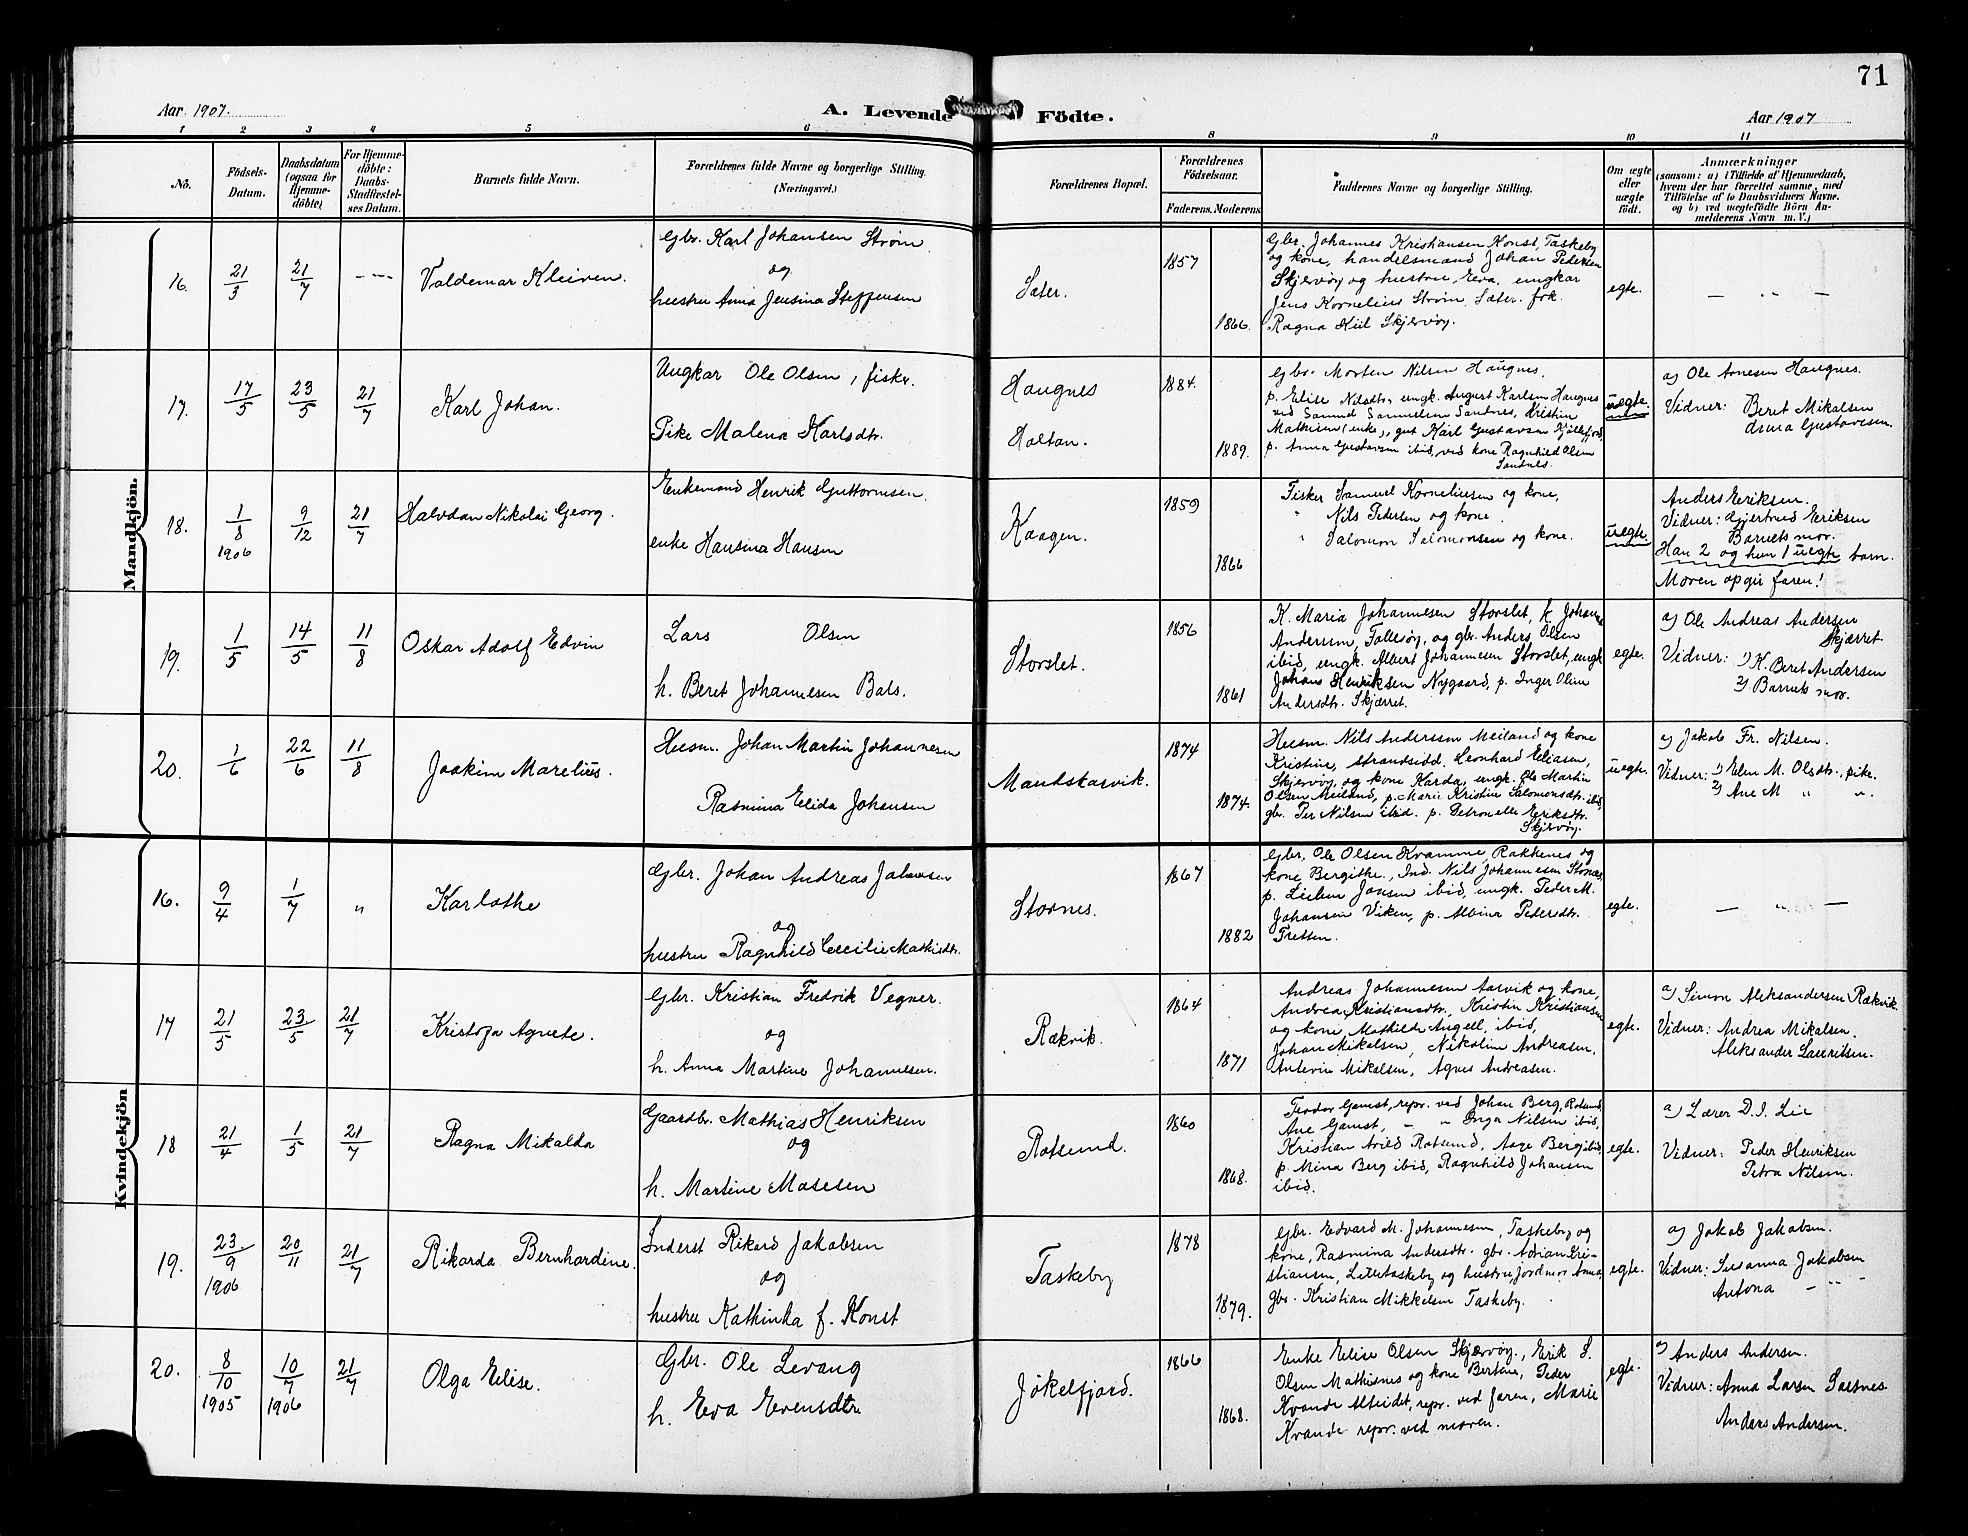 71
Aar 1907.
A. Levende Födte.
Aar 1907
1 2 3 4 5 6 8 9 10 11
No.
Födsels-
Datum.
Daabsdatum
(ogsaa for
Hjemme-
döbte)
For Hjemme-
döbte:
Daabs-
Stadfæstel-
ses Datum.
Barnets fulde Navn.
Forældrenes fulde Navne og borgerlige Stilling.
(Næringsvei.)
Forældrenes Bopæl.
Forældrenes
Födselsaar.
Faderens. Moderens.
Faddernes Navne og borgerlige Stilling.
Om ægte
eller
uægte
födt.
Anmærkninger
(saasom: a) i Tilfælde af Hjemmedaab,
hvem der har forrettet samme, med
Tilföielse af to Daabsvidners Navne.
og b) ved uægtefödte Börn An-
melderens Navn m. V.)
Mandkjön.
16.
21/3
21/7
- - -
Valdemar Kleiven.
Gbr. Karl Johansen Strøm
og
hustru Anna Jensina Steffensen
Sæter.
1857
1866.
Gbr. Johannes Kristiansen Konst, Taskeby
og kone, handelsmand Johan Pedersen
Skjervøy og hustru, Eva, ungkar
Jens Kornelius Strøm, Sæter. frk.
Ragna Kiil Skjervøy.
egte.
— " —
17.
17/5
23/5
21/7
Karl Johan.
Ungkar Ole Olsen, fisker.
Pike Malena Karlsdtr.
Haugnes
Holtan.
1884.
1889.
Gbr. Morten Nilsen Haugnes,
p. Elise Nilsdtr, ungk. August Karlsen Haugnes
ved Samuel Samuelsen Sandnes, Kristin
Mathisen (enke), gut Karl Gustavsen Kjøllefjord,
p. Anna Gustavsen ibid, ved kone Ragnhild Olsen
Sandnes.
uegte.
a) Ole Arnesen Haugnes.
Vidner: Beret Mikalsen
Anna Gustavesen.
18.
1/8
1906
9/12
21/7
Halvdan Nikolai Georg.
Enkemand Henrik Guttormsen.
enke Hansina Hansen
Kaagen.
1859
1866
Fisker Samuel Korneliusen og kone,
" Nils Pedersen og kone.
" Salomon Salomonsen og kone.
uegte.
Anders Eriksen.
Vidner: Gjertrud Eriksen
Barnets mor.
Han 2 og hun 1 uegte barn.
Moren opgir faren!
19.
1/5
14/5
11/8
Oskar Adolf Edvin
Lars Olsen
h. Beret Johannesen Bals.
Storslet.
1856
1861
K. Maria Johannesen Storslet, k. Johanne
Andersen, Follesøy, og gbr. Anders Olsen
ibid, ungk. Albert Johannesen Storslet, ungk
Johans Henriksen Nygaard, p. Inger Oline
Andersdtr. Skjærret.
egte.
a) Ole Andreas Andersen
Skjærret
Vidner: 1) K. Beret Andersen
2) Barnets mor.
20.
1/6
22/6
11/8
Joakim Marelius.
Husm. Johan Martin Johannesen
Rasmina Elida Johansen
Maudstarvik.
1874
1874.
Husm. Nils Anderssen Meiland og kone
Kristine, strandsidd. Leonhard Eliasen,
Skjervøy, og kone Karda, ungk. Ole Martin
Olsen Meiland, p. Marie Kristin Salomonsdtr. ibid,
gbr. Per Nilsen ibid. p. Petronelle Eriksdtr.
Skjervøy.
uegte.
a) Jakob Fr. Nilsen.
Vidner: 1) Elen M. Olsdtr., pike.
2) Ane M " "
Kvindekjön
16.
9/4
1/7
"
Karlothe
Gbr. Johan Andreas Johansen
og
hustru Ragnhild Cecilie Mathisdtr.
Stornes.
1867
1882
Gbr. Ole Olsen Kvamme, Rakkenes og
kone Bergithe, Ind. Nils Johannesen Stornes,
p. Lisben Jonsen ibid, ungk. Peder M.
Johansen Viken, p. Albine Pedersdtr.
Fretten.
egte.
— " —
17
21/5
23/5
21/7
Kristofa Agnete.
Gbr. Kristian Fredrik Vegner.
og
h. Anna Martine Johannesen.
Rækvik.
1864
1871
Andreas Johannesen Aarvik og kone,
Andrea Kristiansdtr, Kristin Kristiansen
og kone, Mathilde Angell, ibid,
Johan Mikelsen, Nikoline Andreasen,
Antevin Mikalsen, Agnes Andreasen.
egte.
a) Simon Aleksandersen Rækvik.
Vidner: Andrea Mikalsen.
Aleksander Lauritsen.
18
21/4
1/5
21/7
Ragna Mikalda
Gaardbr. Mathias Henriksen
og
h. Martine Mosesen
Rotsund.
1860
1868.
Teodor Gamst, repr. ved Johan Berg, Rotsund,
Ane Gamst, " " Inga Nilsen ibid,
Kristian Arild Rotsund, Aage Berg ibid,
p. Mina Berg ibid, Ragnhild Johansen
ibid.
egte.
a) Lærer D. I. Lie
Vidner: Peder Henriksen
Petra Nilsen.
19.
23/9
1906
20/11
21/7
Rikarda Bernhardine.
Inderst Rikard Jakobsen
og
hustru Kathinka f. Konst
Taskeby
1878
1879.
Gbr. Edvard M. Johannesen, Taskeby og
kone, Rasmina Andersdtr. gbr. Adrian Kri-
stiansen, Lilletaskeby og hustru, jordmor Anna,
gbr. Kristian Mikkelsen Taskeby.
egte.
a) Jakob Jakobsen.
Vidner: Susanna Jakobsen
Antona "
20.
8/10
1905
10/7
1906
21/7
Olga Elise.
Gbr. Ole Levang
h. Eva Evensdtr
Jøkelfjord.
1866
1868.
Enke Elise Olsen Skjærvøy., Erik S.
Olsen Mathisnes og kone Bertine, Peder
Kvande Alteidet, repr. ved faren, Marie
Kvande repr. ved moren.
egte.
a) Anders Andersen.
Vidner: Anna Larsen Saltnes
Anders Andersen.